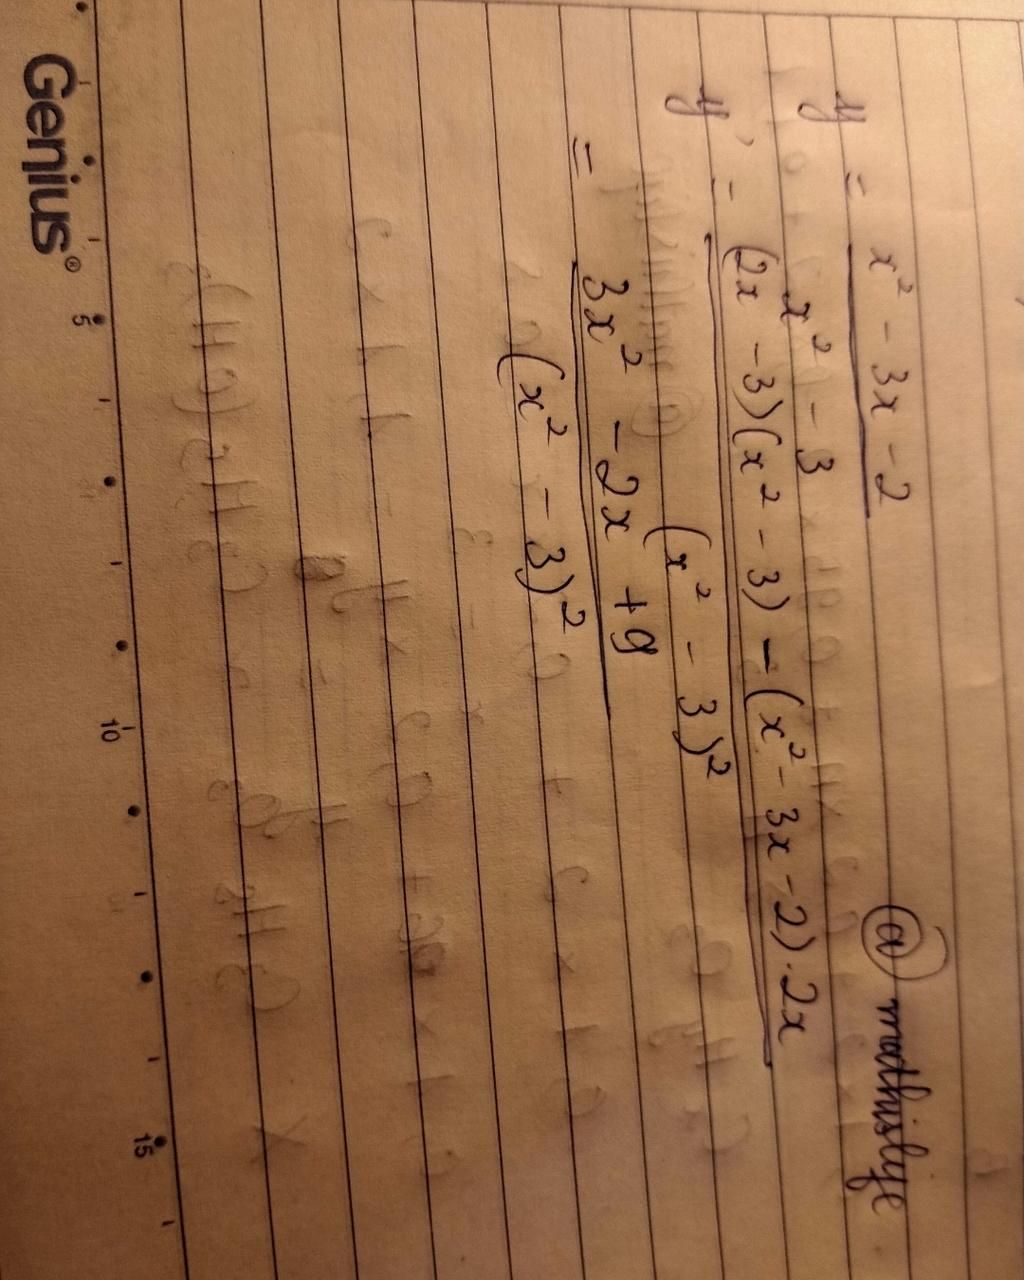 @mathislyfe
y = x² - 3x - 2
x² - 3
y' = (2x - 3)(x² - 3) - (x² - 3x - 2) · 2x
(x² - 3)²
= 3x² - 2x + 9
(x² - 3)²
Genius®
5 10 15